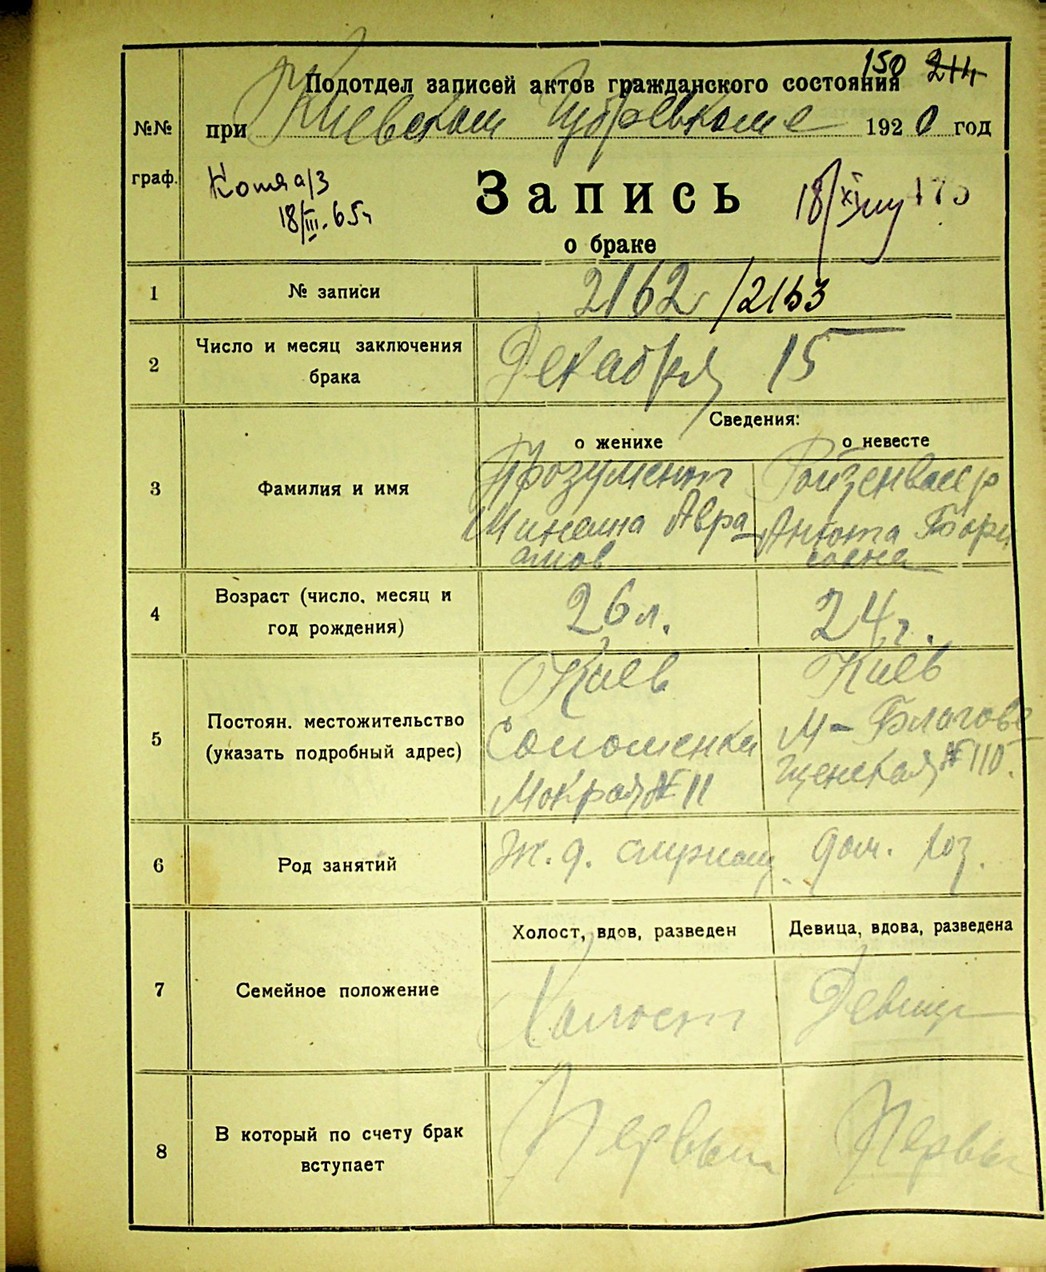 150 244
Подотдел записей актов гражданского состояния
№№ при Киевском Губревкоме 1920 год
граф. Копия а/з
18/III.65г
Запись
18/XI 475
о браке
1 № записи 2162/2163
2 Число и месяц заключения брака Декабря 15
Сведения:
о женихе о невесте
3 Фамилия и имя Прозумент Ройзенвассер
Авра Анюта Бори
амов совна
4 Возраст (число, месяц и год рождения) 26 л. 24 г.
5 Постоян. местожительство (указать подробный адрес)
Киев Киев
Соломенка М-Благове
Мокрая № 11 щенская № 110.
6 Род занятий Ж. д. служащ. дом. хоз.
Холост, вдов, разведен Девица, вдова, разведена
7 Семейное положение Холост Девица
8 В который по счету брак вступает Первый Первый